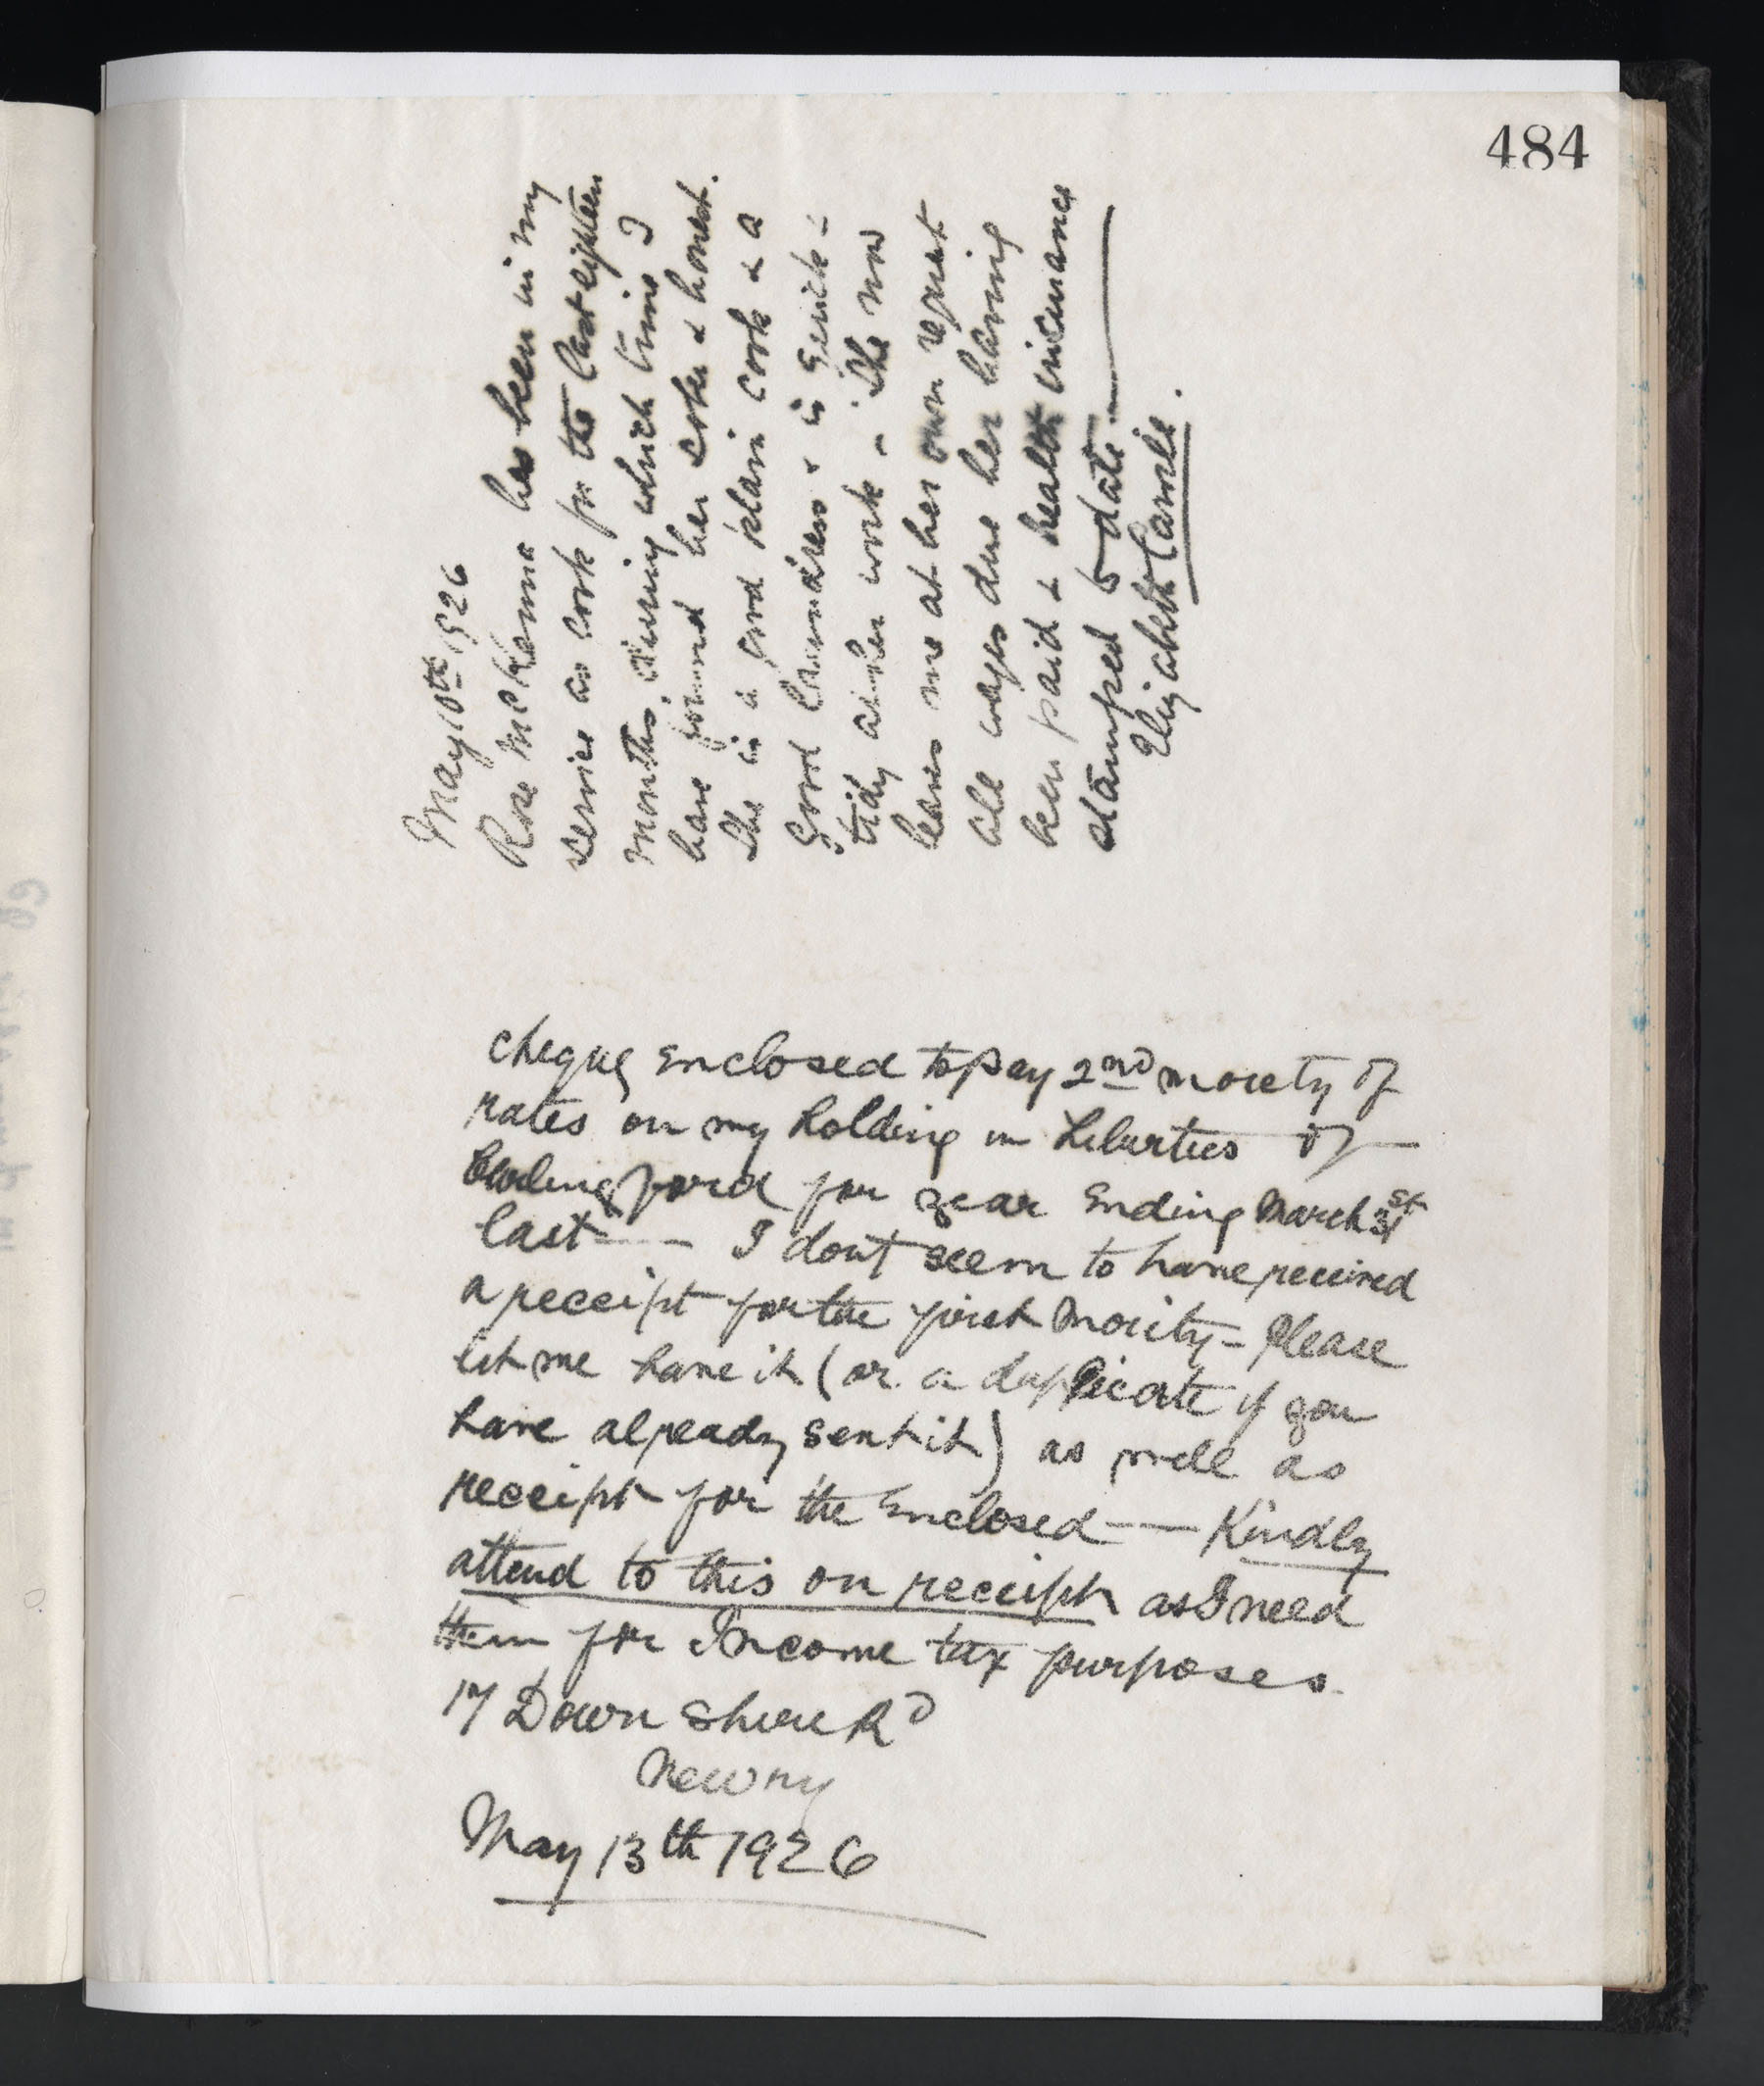 484
May 10th 1926
Rose McKenna has been in my
service as cook for the last eighteen
months, during which time I
have found her sober & honest.
She is a good plain cook & a
good laundress & is quick &
tidy at her work - She now
leaves me at her own request
all wages due her having
been paid & health insurance
stamped to date.
Elizabeth Carvill.
cheque enclosed to pay 2nd moiety of
rates on my holding in Liberties of
Carlingford for year Ending March 31st
last — I dont seem to have received
a receipt for the first Moiety - Please
let me have it (or a duplicate if you
have already sent it) as well as
receipt for the Enclosed — Kindly
attend to this on receipt as I need
them for Income tax purposes.
17 Down Shire Rd
Newry
May 13th 1926